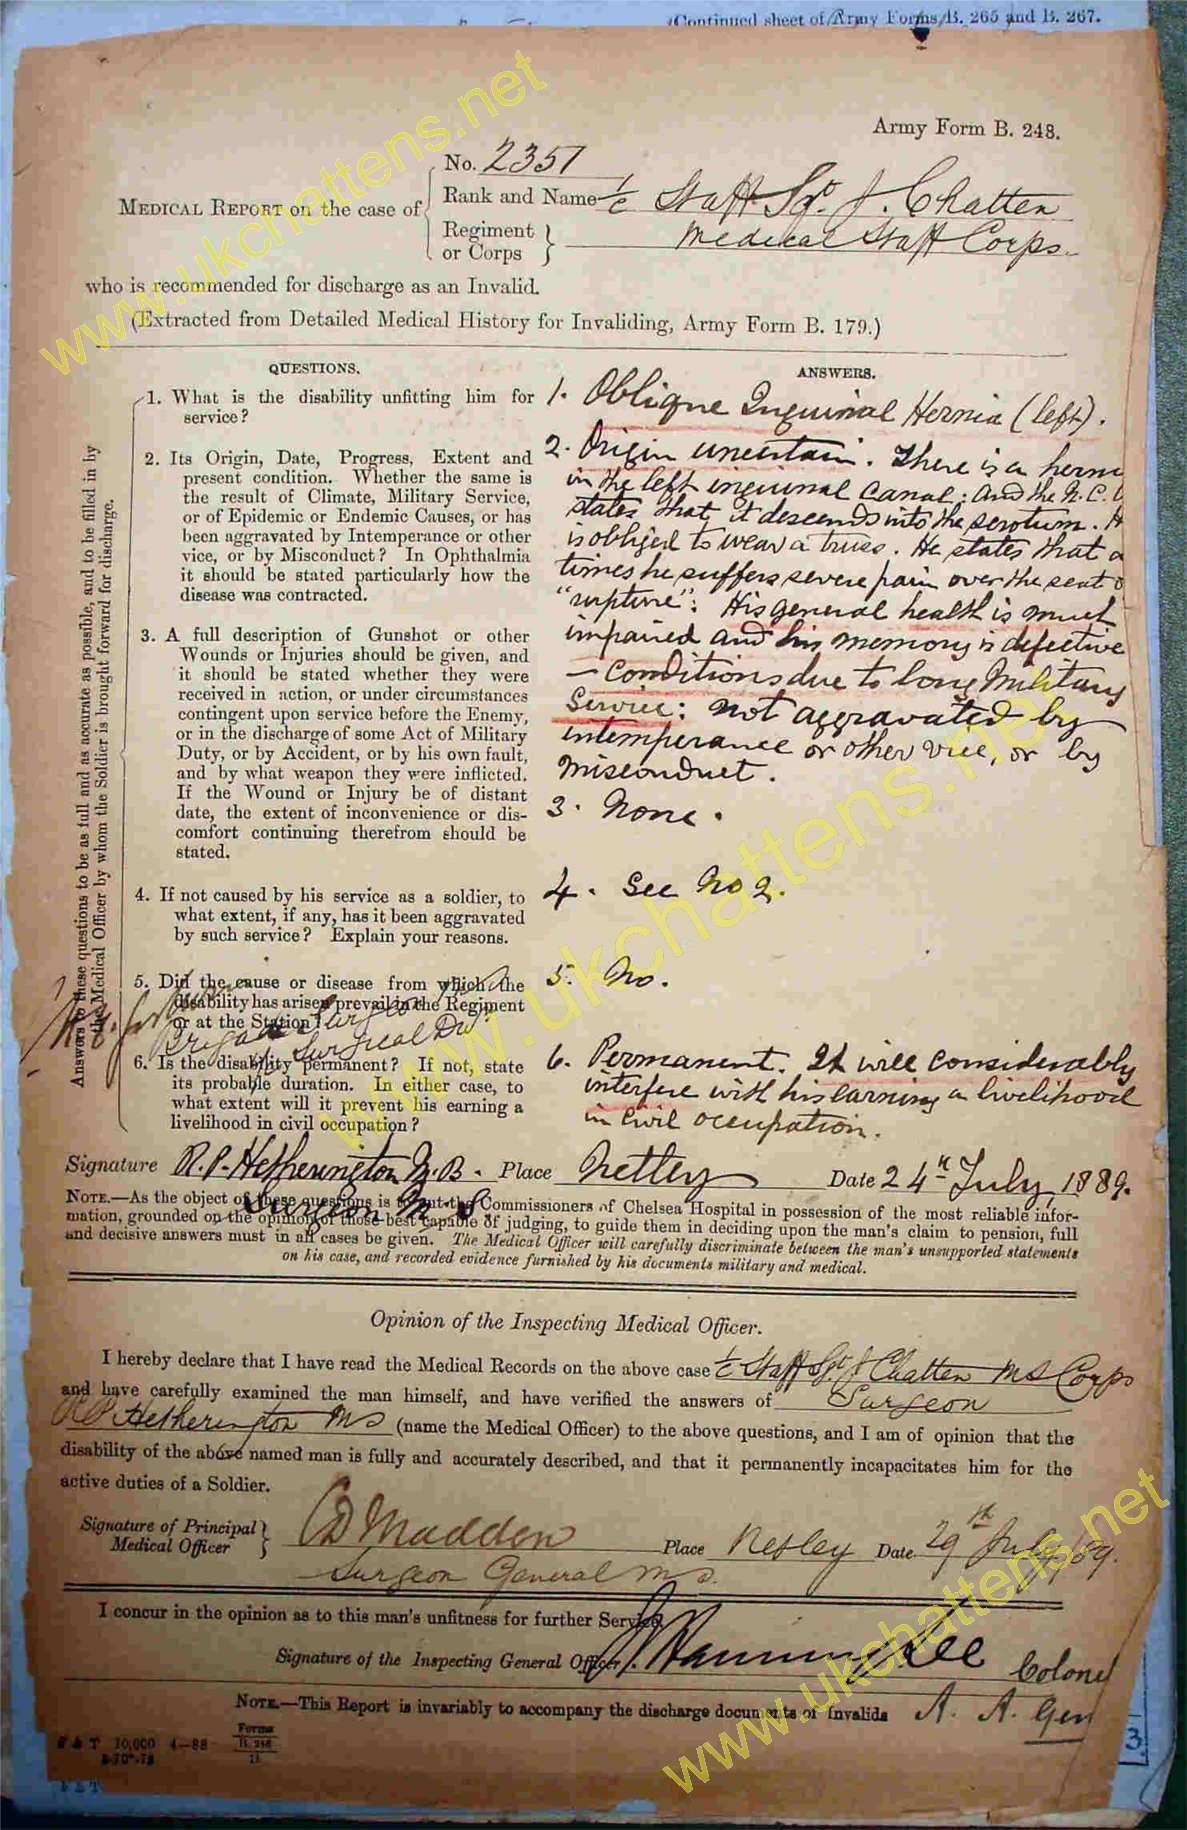 (Continued sheet of Army Forms, B. 265 and B. 267.
Army Form B. 248.
No. 2351
MEDICAL REPORT on the case of
Rank and Name 1/c Staff Sgt. J. Chatten
Regiment or Corps
Medical Staff Corps.
who is recommended for discharge as an Invalid.
(Extracted from Detailed Medical History for Invaliding, Army Form B. 179.)
Answers to these questions to be as full and as accurate as possible, and to be filled in by
the Medical Officer by whom the Soldier is brought forward for discharge.
QUESTIONS.
1. What is the disability unfitting him for
service?
2. Its Origin, Date, Progress, Extent and
present condition. Whether the same is
the result of Climate, Military Service,
or of Epidemic or Endemic Causes, or has
been aggravated by Intemperance or other
vice, or by Misconduct? In Ophthalmia
it should be stated particularly how the
disease was contracted.
3. A full description of Gunshot or other
Wounds or Injuries should be given, and
it should be stated whether they were
received in action, or under circumstances
contingent upon service before the Enemy,
or in the discharge of some Act of Military
Duty, or by Accident, or by his own fault,
and by what weapon they were inflicted.
If the Wound or Injury be of distant
date, the extent of inconvenience or dis-
comfort continuing therefrom should be
stated.
4. If not caused by his service as a soldier, to
what extent, if any, has it been aggravated
by such service? Explain your reasons.
5. Did the cause or disease from which the
disability has arisen prevail in the Regiment
or at the Station?
Brigade Surgeon
Surgical Div
6. Is the disability permanent? If not, state
its probable duration. In either case, to
what extent will it prevent his earning a
livelihood in civil occupation?
ANSWERS.
1. Oblique Inguinal Hernia (left).
2. Origin uncertain. There is a herni
in the left inguinal canal; and the N.C.
states that it descends into the scrotum. H
is obliged to wear a truss. He states that a
times he suffers severe pain over the seat o
"rupture". His general health is much
impaired and his memory is defective
- Conditions due to long Military
Service: not aggravated by
intemperance or other vice, or by
misconduct.
3. None.
4. See No 2.
5. No.
6. Permanent. It will considerably
interfere with his earning a livelihood
in civil occupation.
Signature R.P. Hetherington M.B. Place Netley Date 24th July, 1889.
Surgeon M.S
NOTE.—As the object of these questions is to put the Commissioners of Chelsea Hospital in possession of the most reliable infor-
mation, grounded on the opinion of those best capable of judging, to guide them in deciding upon the man's claim to pension, full
and decisive answers must in all cases be given. The Medical Officer will carefully discriminate between the man's unsupported statements
on his case, and recorded evidence furnished by his documents military and medical.
Opinion of the Inspecting Medical Officer.
I hereby declare that I have read the Medical Records on the above case 1/c Staff Sgt J Chatten MS Corps
and have carefully examined the man himself, and have verified the answers of Surgeon
RP Hetherington MS (name the Medical Officer) to the above questions, and I am of opinion that the
disability of the above named man is fully and accurately described, and that it permanently incapacitates him for the
active duties of a Soldier.
Signature of Principal Medical Officer
CD Madden Place Netley Date 29th July/89.
Surgeon General MS.
I concur in the opinion as to this man's unfitness for further Service.
Signature of the Inspecting General Officer. Colonel
NOTE.—This Report is invariably to accompany the discharge documents of Invalids A. A. Gen
& T 10,000 4—88 Forms B. 248
3
www.ukchattens.net
www.ukchattens.net
www.ukchattens.net